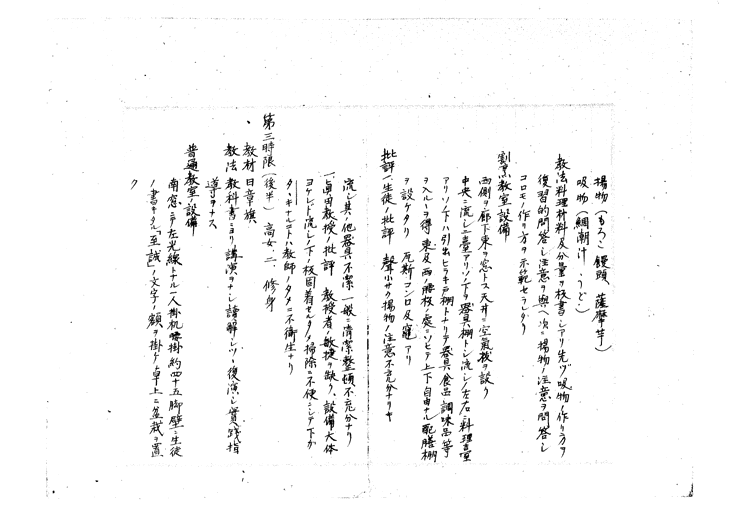 揚物(もろこ 饅頭 薩摩芋)
吸物(鯛潮汁 うど)
教法 料理材料及分量ヲ板書シアリ先ヅ吸物ノ作リ方ヲ
復習的問答シ注意ヲ與ヘ次ニ揚物ノ注意ヲ問答シ
コロモノ作リ方ヲ示範セラレタリ
割烹教室設備
西側ヲ廊下東ヲ窓トス天井ニ空氣抜ヲ設ク
中央ニ流シ二臺アリソノ下ヲ器具棚トシ流シノ左右ニ料理臺
アリソノ下ハ引出ヒラキ戸棚トナリテ器具食品調味品等
ヲ入ルヽヲ得 東及西腰板ノ處ニソヒテ上下自由ナル配膳棚
ヲ設ケタリ 瓦斯コンロ及竈アリ
批評 一、生徒ノ批評 聲小サク揚物ノ注意不充分ナリキ
流シ其ノ他器具不潔 一般ニ清潔整頓不充分ナリ
一、貞田教授ノ批評 教授者ノ敏捷ヲ缺ク、設備大体
ヨケレド流シノ下ノ板固着セルタメ掃除ニ不便ニシテ下ガ
タヽキナルコトハ教師ノタメニ不衛生ナリ
第三時限(後半) 高女、二、修身
教材 日章旗、
教法 教科書ニヨリ講演ヲナシ讀解シツヽ復演シ實践指
導ヲナス
普通教室ノ設備
南窓ニテ左光線トナル一人掛机腰掛約四十五脚壁ニ生徒
ノ書キタル「至誠」ノ文字ノ額ヲ掛ケ卓上ニ盆栽ヲ置
ク